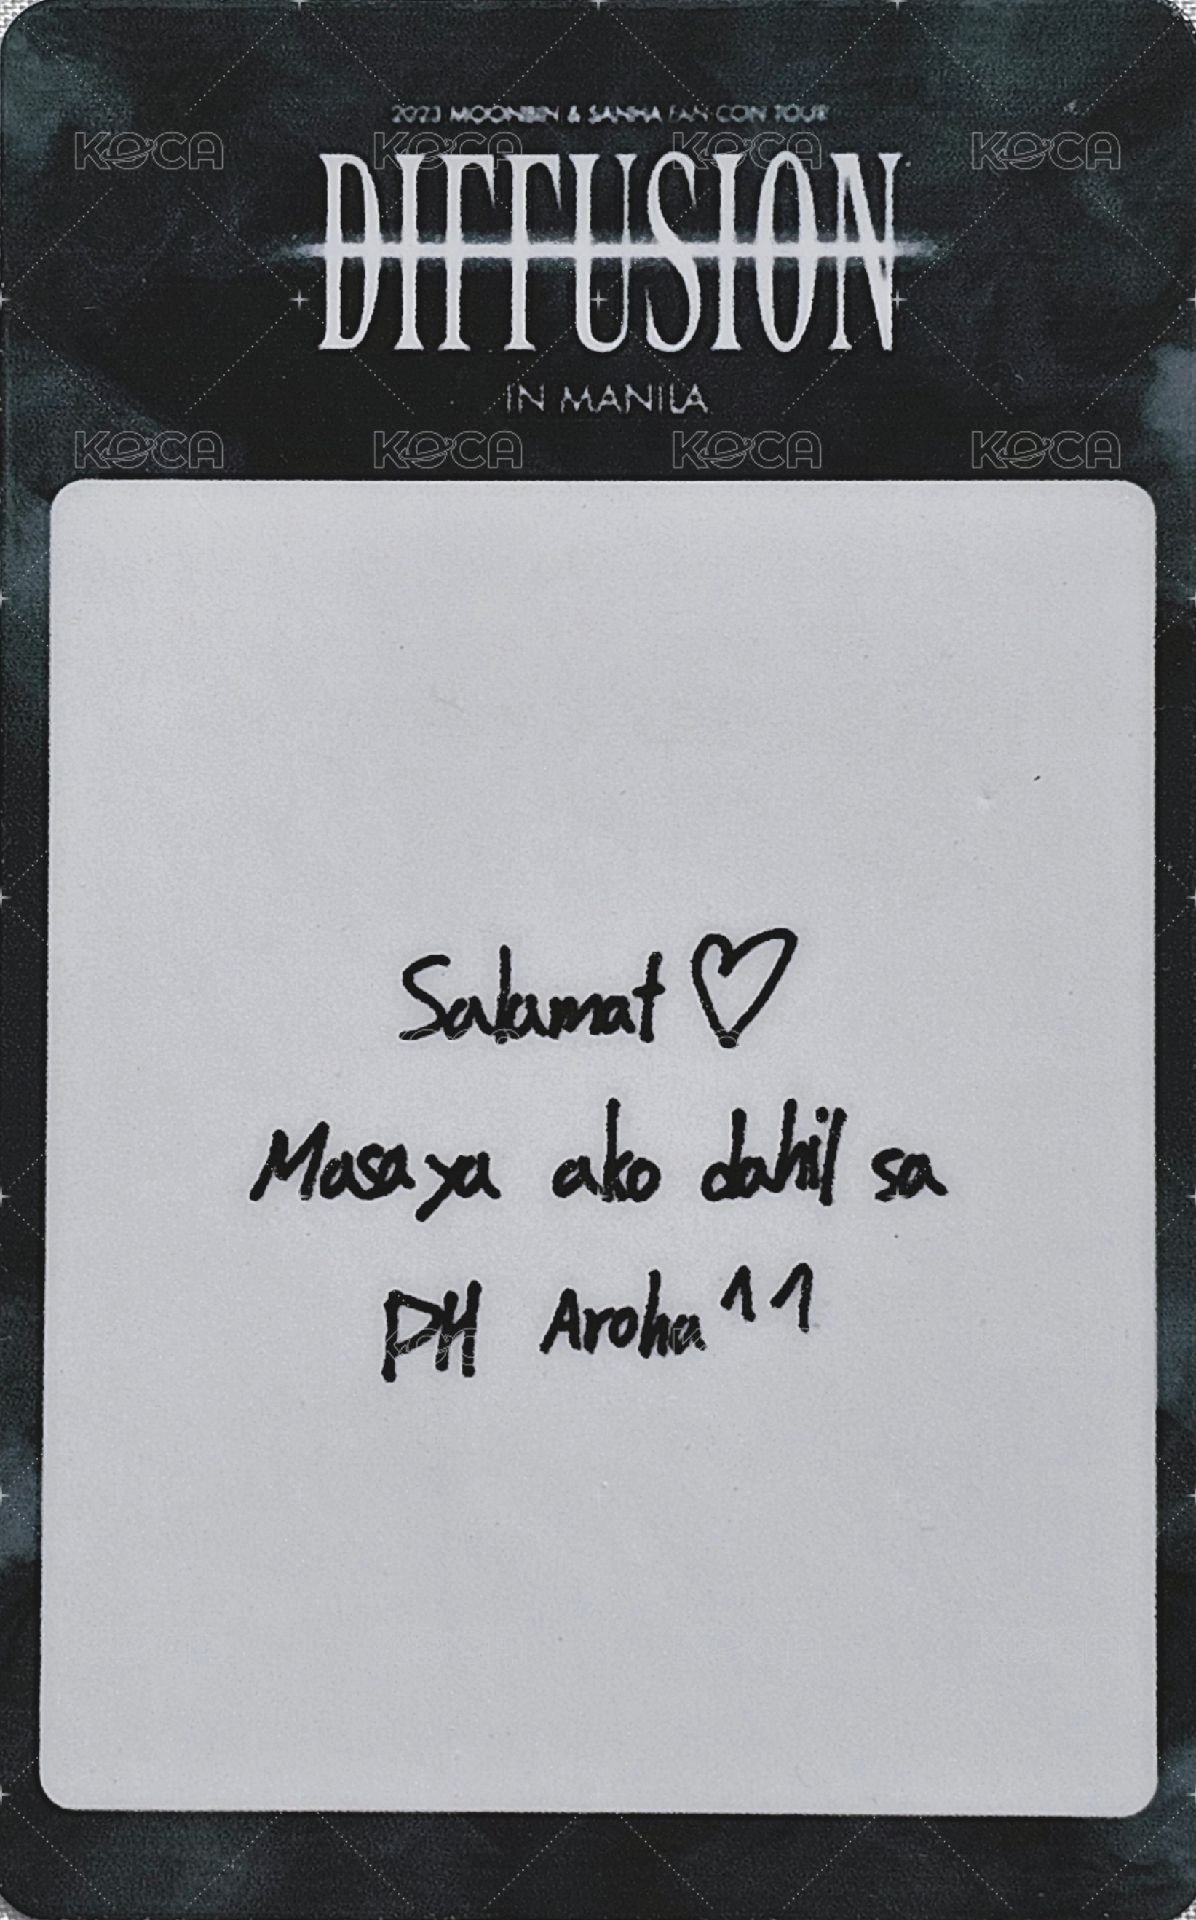 2023 MOONBIN & SANHA FAN CON TOUR
DIFFUSION
IN MANILA
KOCA KOCA KOCA KOCA
KOCA KOCA KOCA KOCA
Salamat ♡
Masaya ako dahil sa
PH Aroha ^^